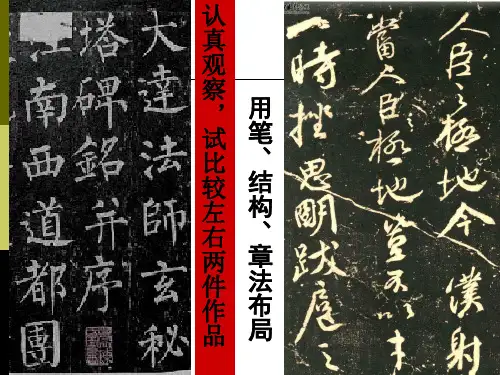 大達法師玄秘
塔碑銘并序
江南西道都團
认真观察，试比较左右两件作品
用笔、结构、章法布局
人臣之極地今 僕射
當人臣極地豈不以才
一時挫思明跋扈之